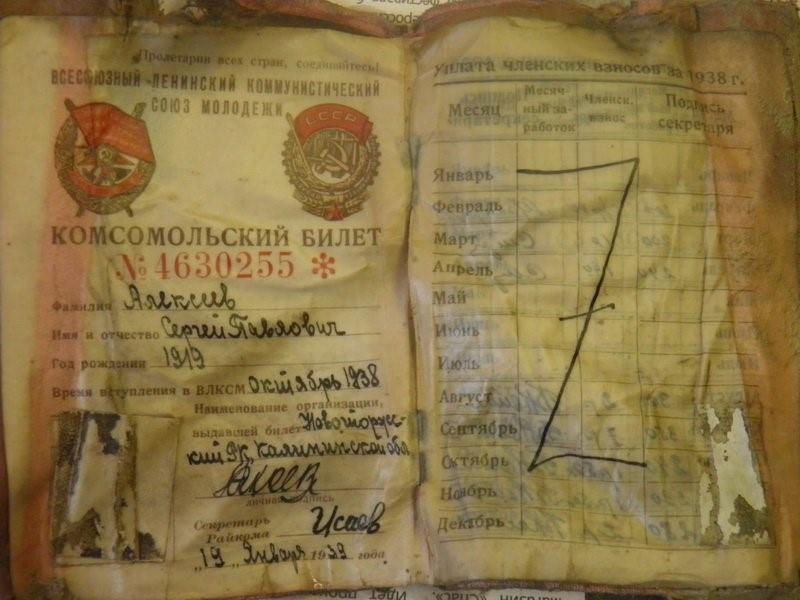 Пролетарии всех стран, соединяйтесь!
ВСЕСОЮЗНЫЙ ЛЕНИНСКИЙ КОММУНИСТИЧЕСКИЙ
СОЮЗ МОЛОДЕЖИ
СССР
КОМСОМОЛЬСКИЙ БИЛЕТ
№ 4630255 *
Фамилия Алексеев
Имя и отчество Сергей Павлович
Год рождения 1919
Время вступления в ВЛКСМ октябрь 1938
Наименование организации,
выдавшей билет Новоторжс-
кий РК Калининской обл
личная подпись
Секретарь Исаев
Райкома
"19" Января 1939 года
Уплата членских взносов за 1938 г.
Месяц
Месяч-
ный за-
работок
Членск.
взнос
Подпись
секретаря
Январь
Февраль
Март
Апрель
Май
Июнь
Июль
Август
Сентябрь
Октябрь
Ноябрь
Декабрь